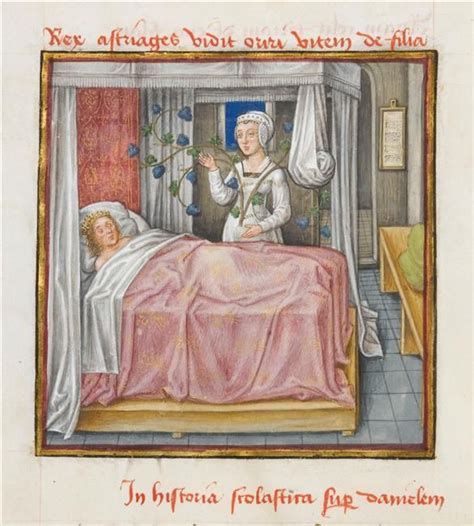 Rex astriages vidit oriri vitem de filia
In historia scolastica sup danielem